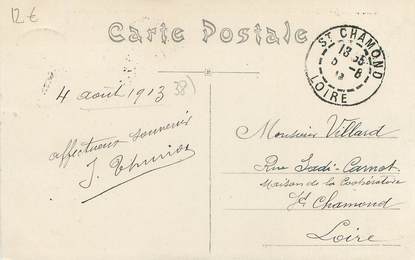 12 €
Carte Postale
ST CHAMOND
13 35
5 - 8
13
LOIRE
4 août 1913
38)
affectueux souvenir
J.
Monsieur Villard
Rue Sadi-Carnot
Maison de la Coopérative
St Chamond
Loire